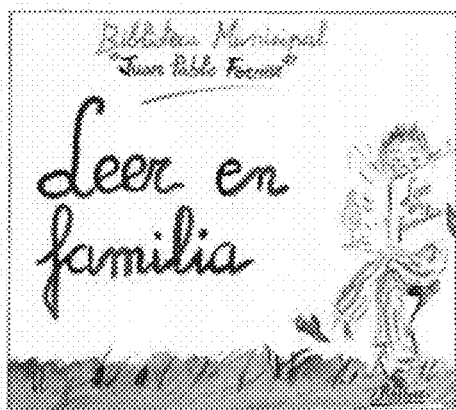 Biblioteca Municipal
"Juan Pablo Forner"
Leer en
familia